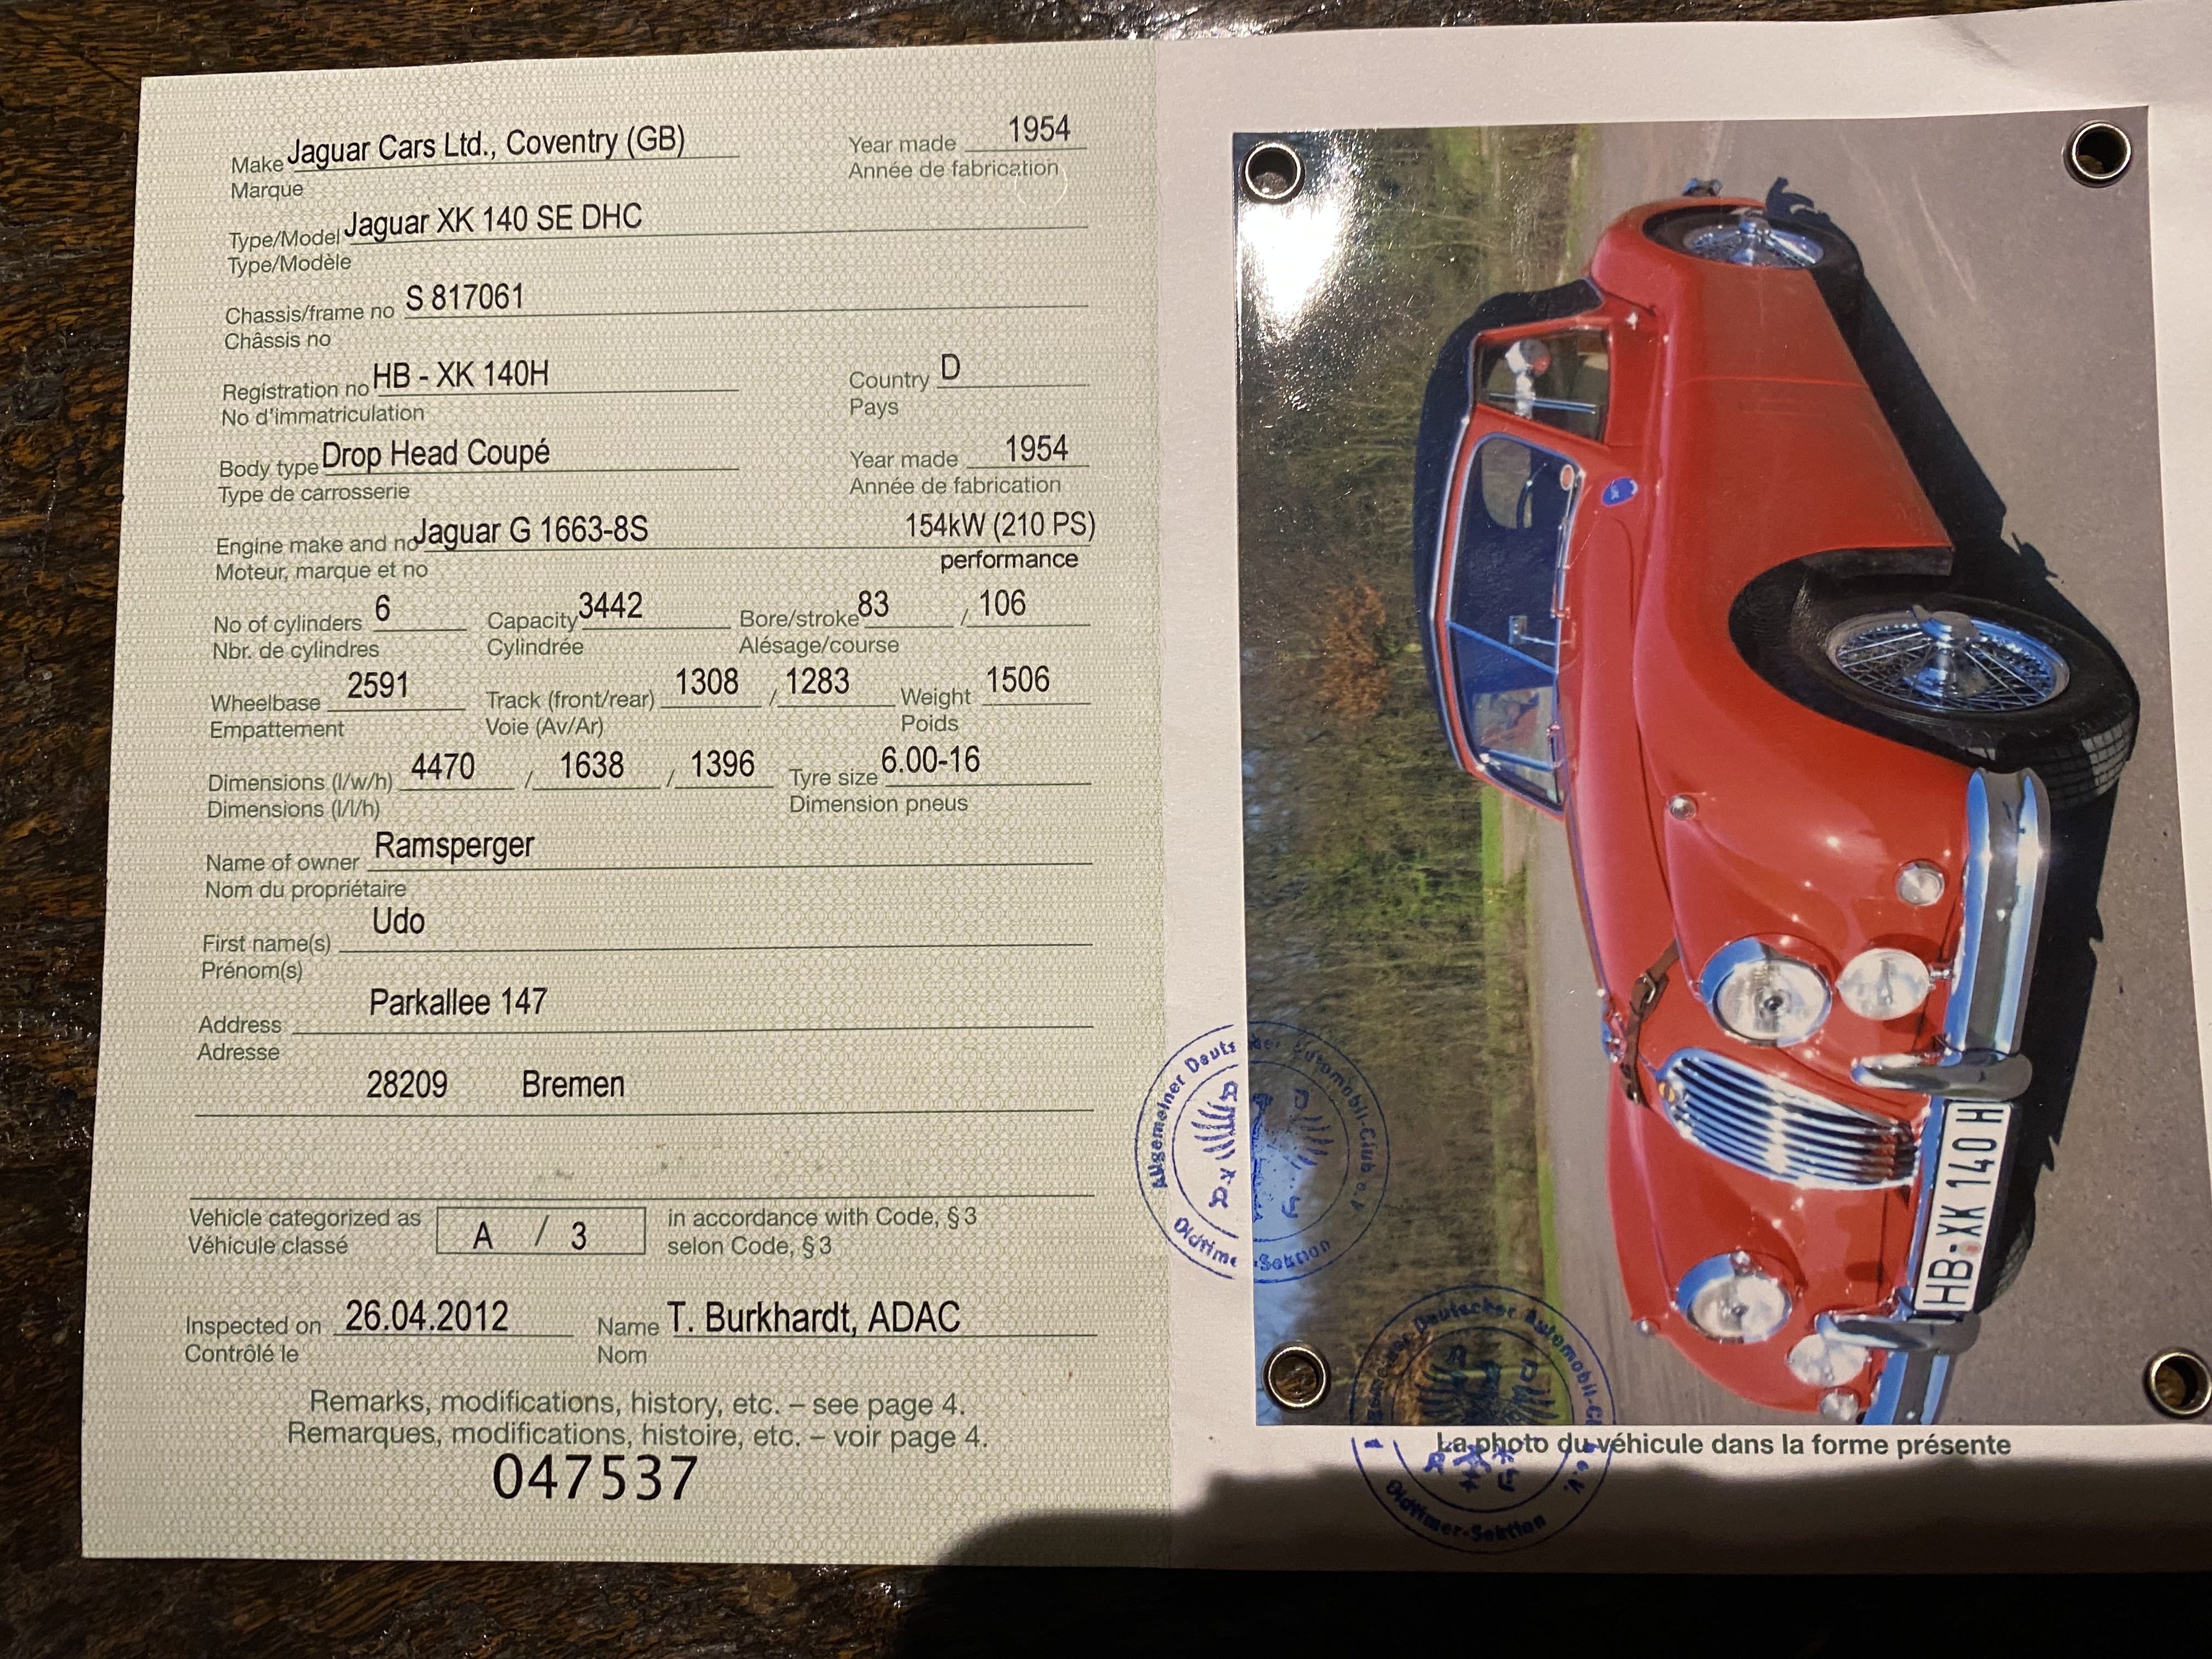 Make Jaguar Cars Ltd., Coventry (GB) Year made 1954
Marque Année de fabrication
Type/Model Jaguar XK 140 SE DHC
Type/Modèle
Chassis/frame no S 817061
Châssis no
Registration no HB - XK 140H Country D
No d'immatriculation Pays
Body type Drop Head Coupé Year made 1954
Type de carrosserie Année de fabrication
Engine make and no Jaguar G 1663-8S 154kW (210 PS)
Moteur, marque et no performance
No of cylinders 6 Capacity 3442 Bore/stroke 83 / 106
Nbr. de cylindres Cylindrée Alésage/course
Wheelbase 2591 Track (front/rear) 1308 / 1283 Weight 1506
Empattement Voie (Av/Ar) Poids
Dimensions (l/w/h) 4470 / 1638 / 1396 Tyre size 6.00-16
Dimensions (l/l/h) Dimension pneus
Name of owner Ramsperger
Nom du propriétaire
First name(s) Udo
Prénom(s)
Address Parkallee 147
Adresse
28209 Bremen
Vehicle categorized as A / 3 in accordance with Code, § 3
Véhicule classé selon Code, § 3
Inspected on 26.04.2012 Name T. Burkhardt, ADAC
Contrôlé le Nom
Remarks, modifications, history, etc. – see page 4.
Remarques, modifications, histoire, etc. – voir page 4.
047537
HB-XK 140 H
Allgemeiner Deutscher Automobil-Club e.V.
Oldtimer-Sektion
La photo du véhicule dans la forme présente
Allgemeiner Deutscher Automobil-Club e.V.
Oldtimer-Sektion